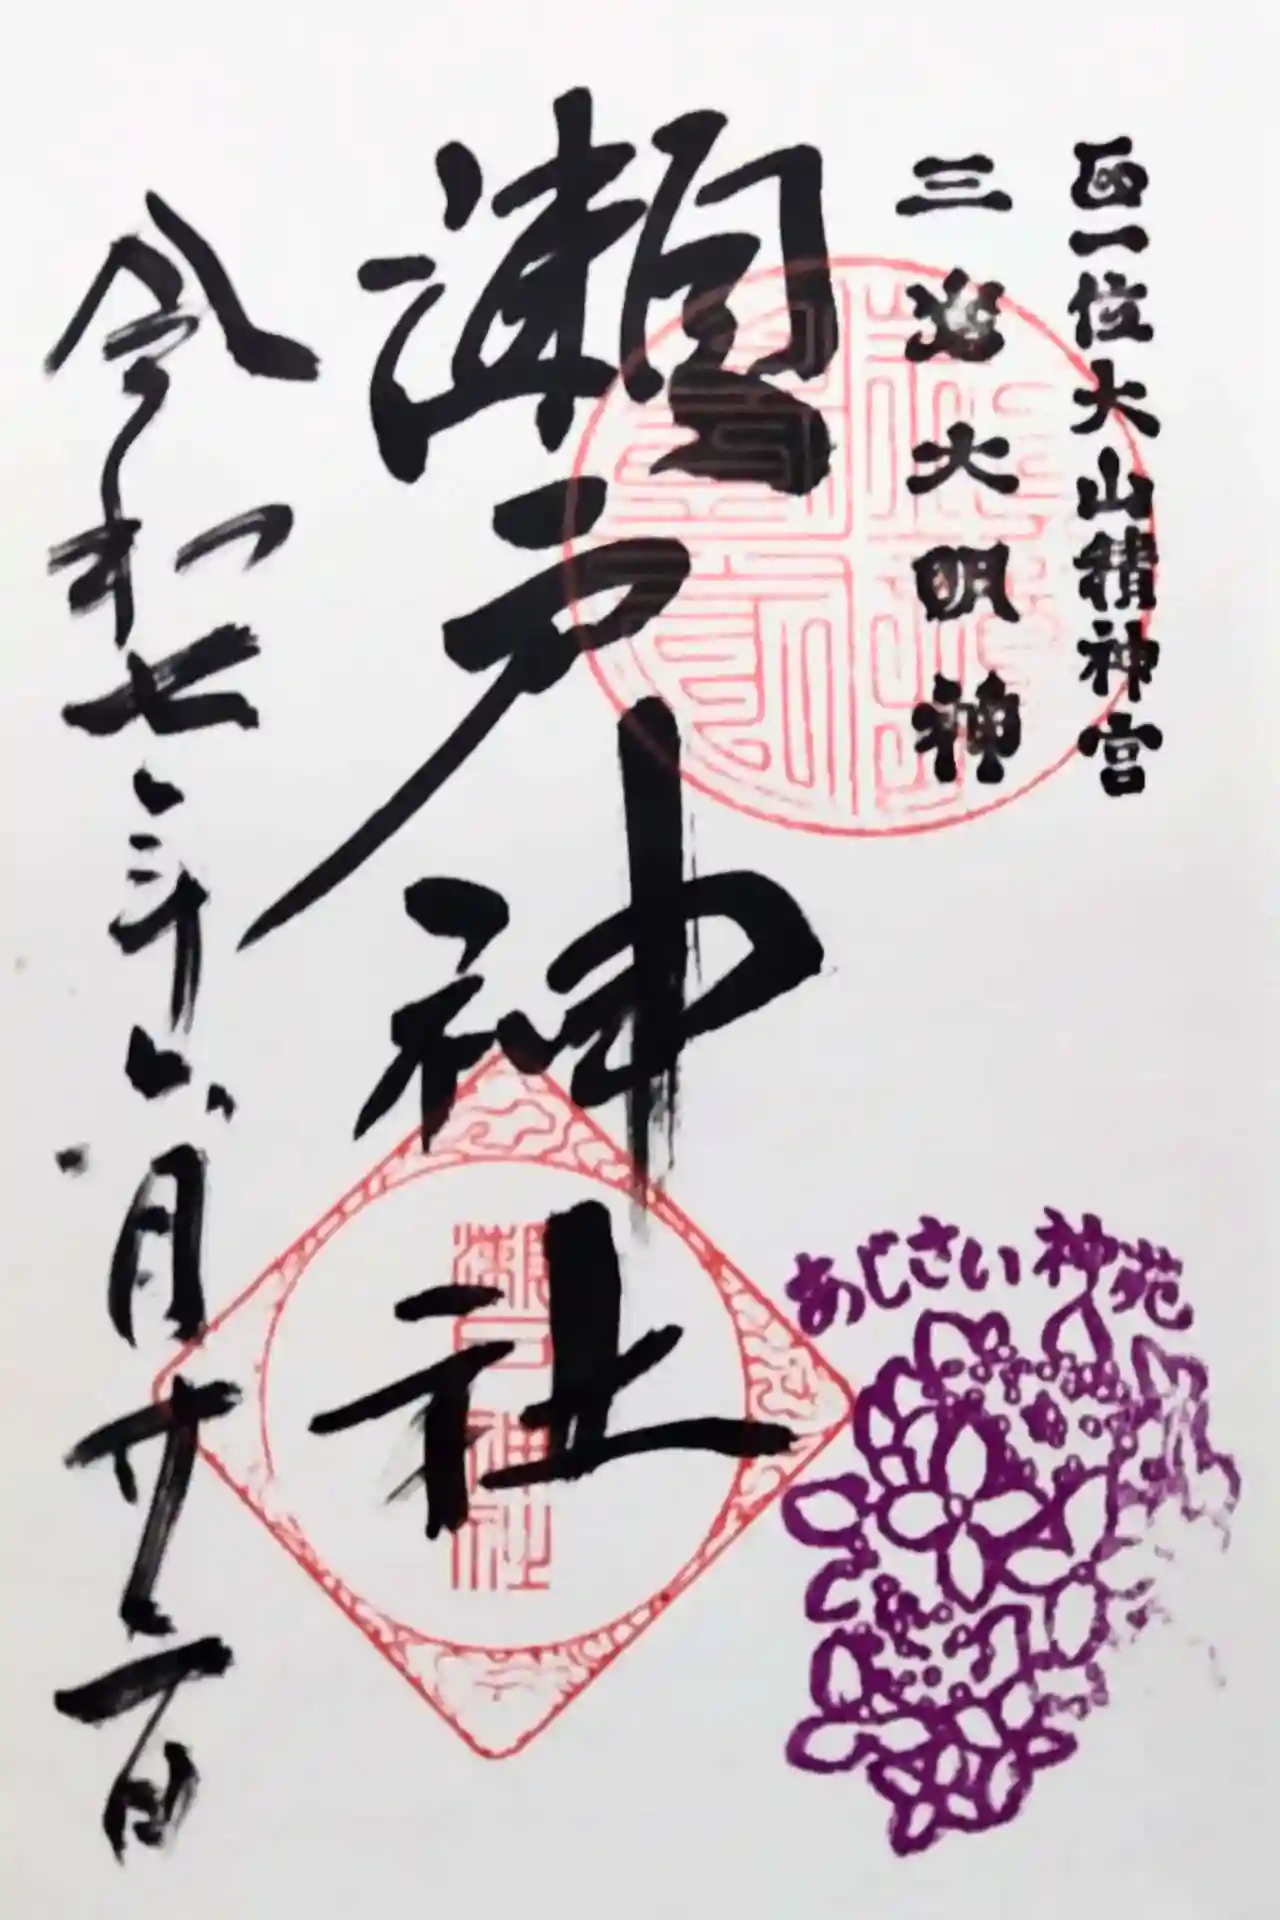 正一位大山積神宮
三嶌大明神
瀬戸神社
令和七年六月廿二日
あじさい神苑
瀬戸神社